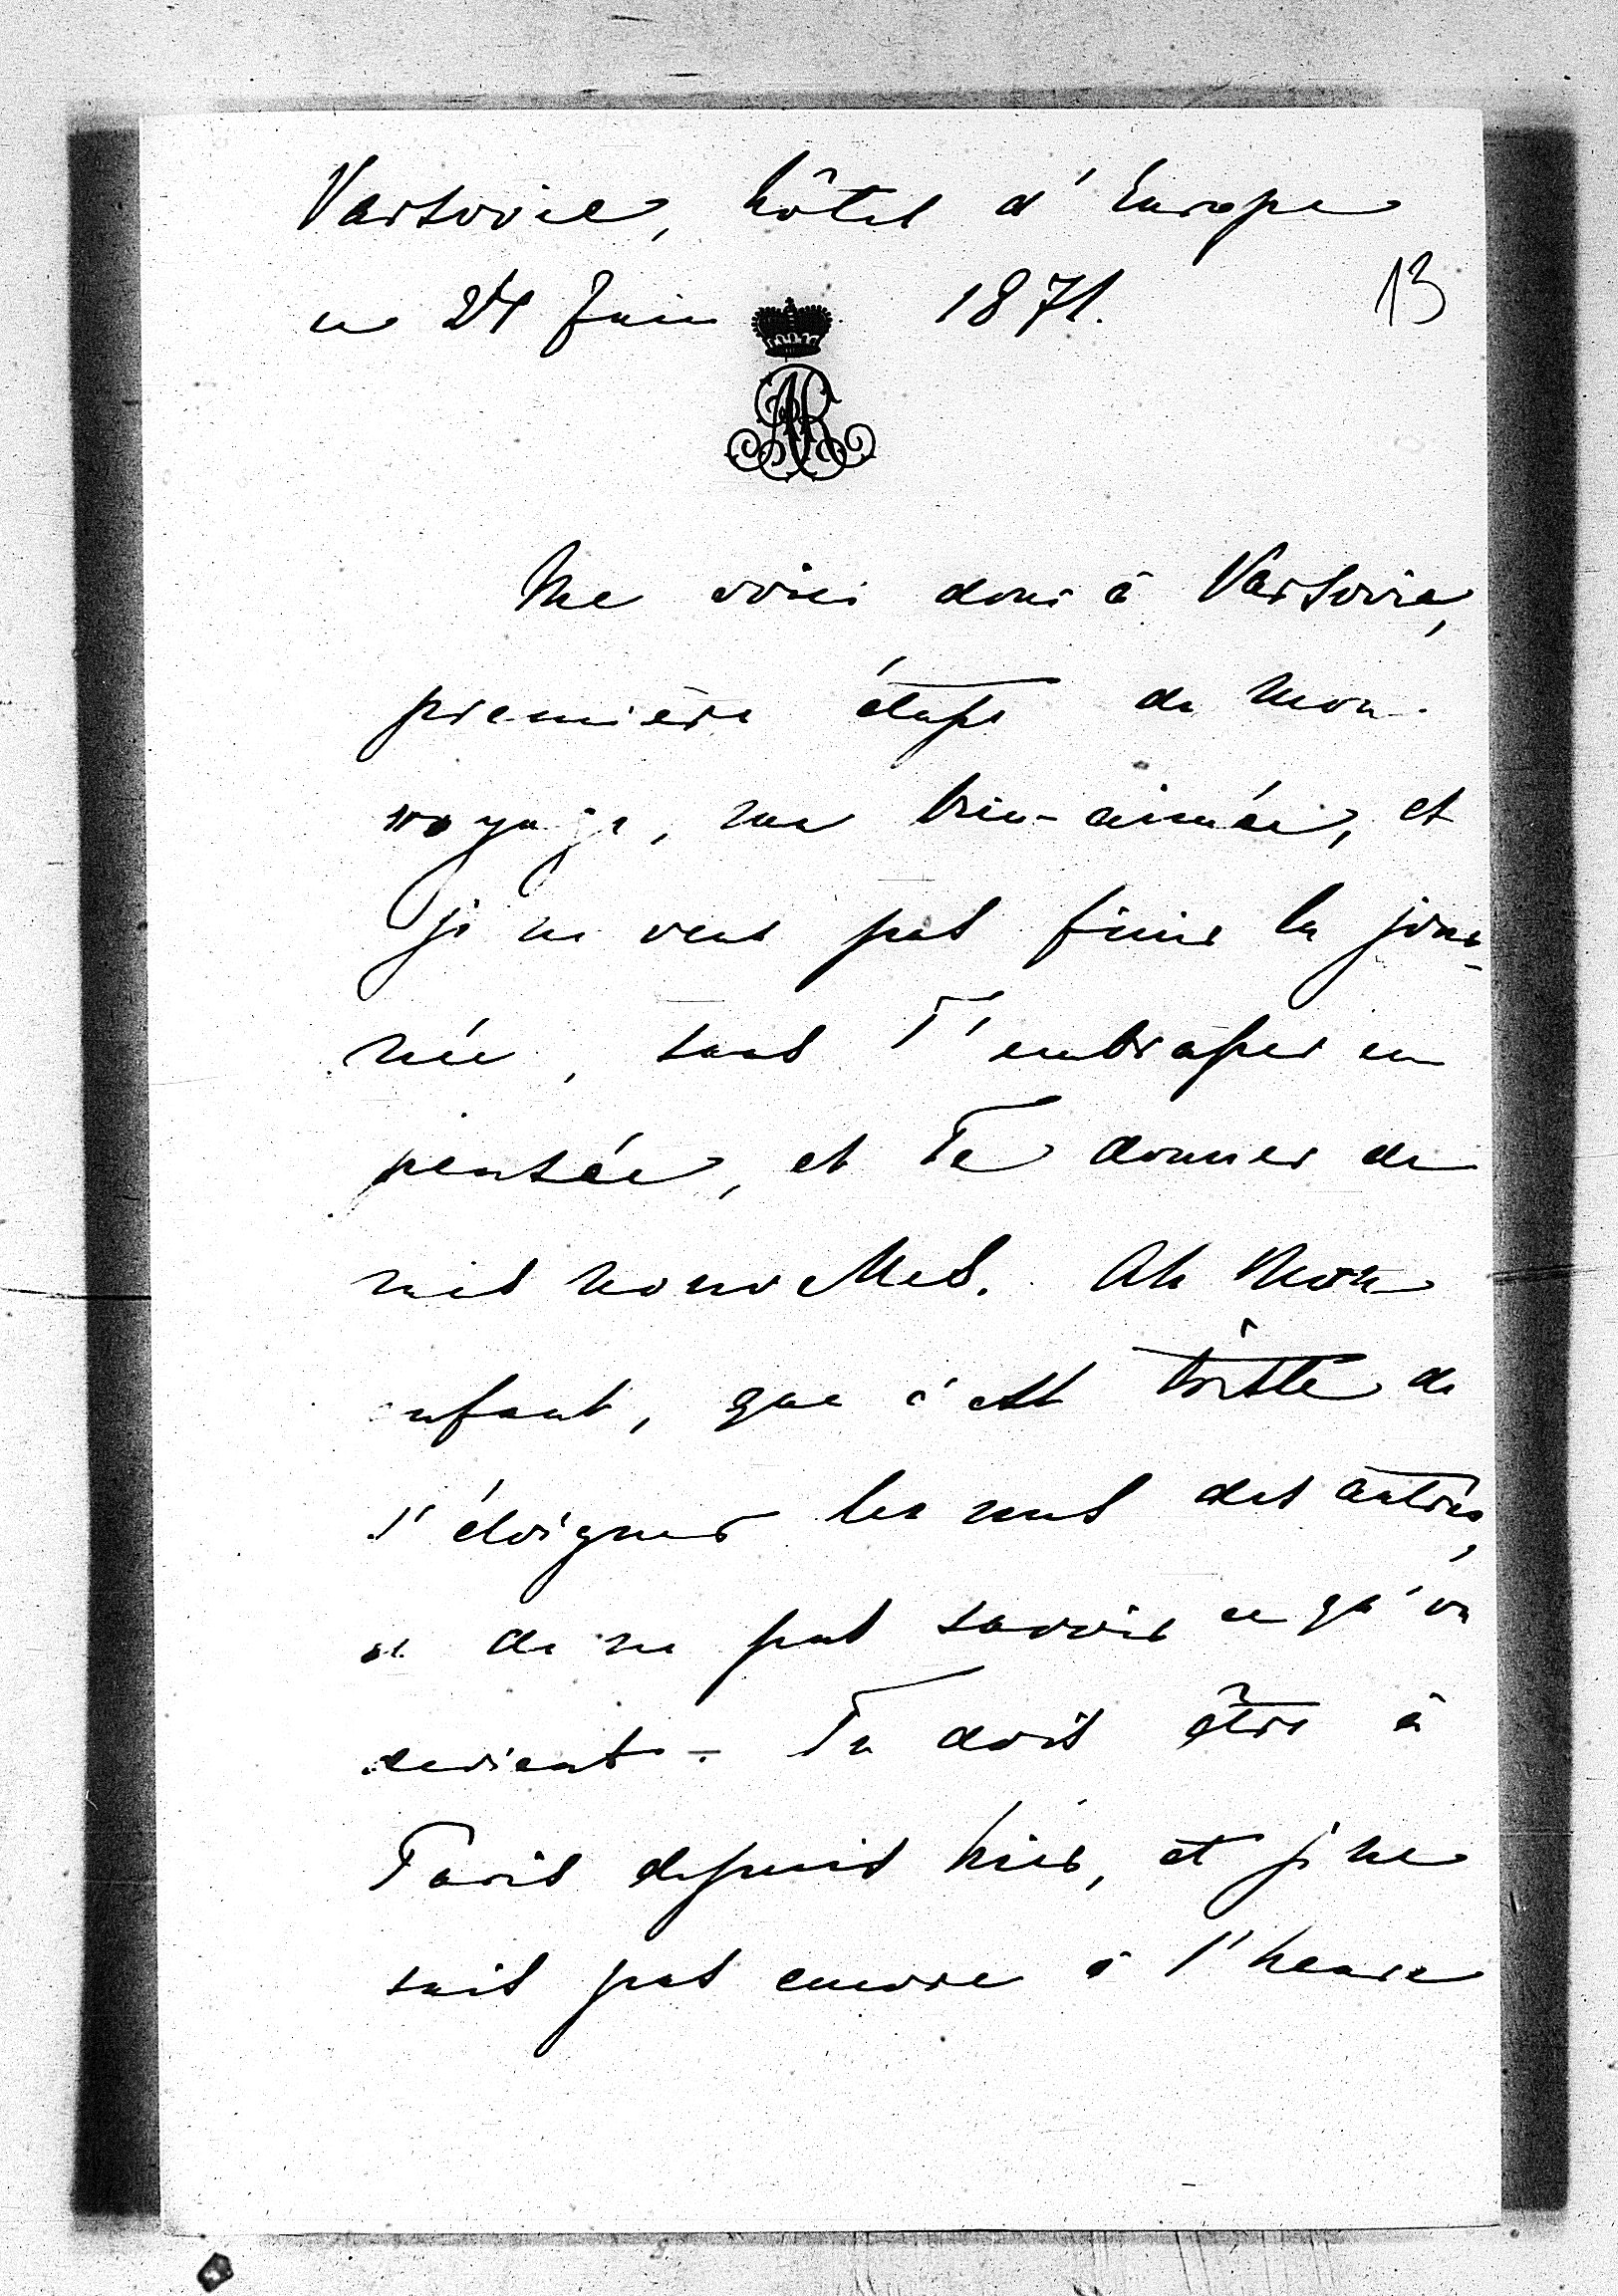 Varsovie, hôtel d'Europe
ce 24 Juin 1871. 13
AR
Me voici donc à Varsovie,
première étape de mon
voyage, ma bien-aimée, et
je ne veux pas finir la jour-
née, sans T'embrasser en
pensée, et Te donner de
mes nouvelles. Ah mon
enfant, que c'est triste de
s'éloigner les uns des autres,
et de ne pas savoir ce qu'on
devient. Tu dois être à
Paris depuis hier, et je ne
sais pas encore à l'heure